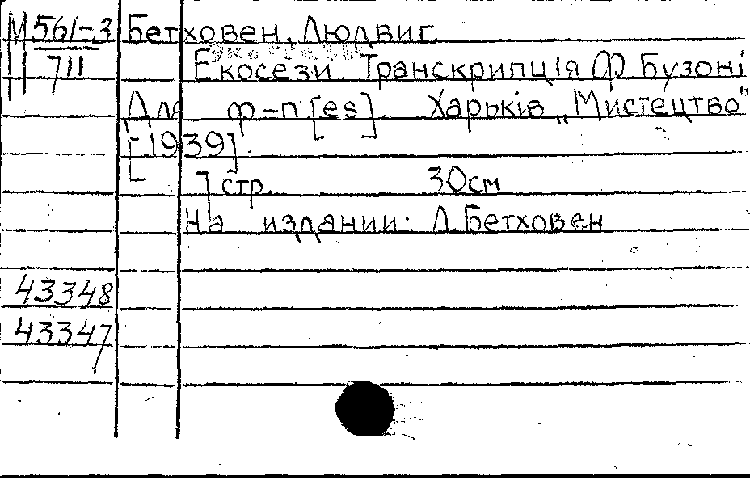 М 561-3 Бетховен, Людвиг
711 Екосези Транскрипція Ф Бузоні
Для ф-п [es] Харьків „Мистецтво"
[1939].
7 стр. 30см
На издании: Л.Бетховен
43348
43347